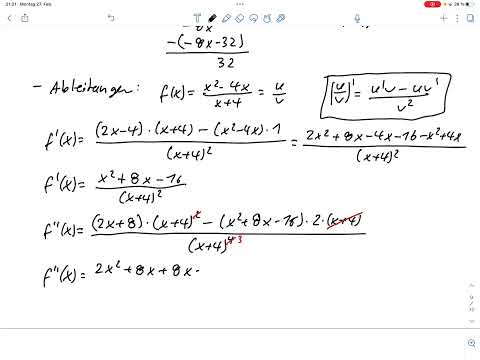 21:21 Montag 27. Feb.
-8x
-(-8x-32)
32
- Ableitungen: f(x) = (x²-4x)/(x+4) = u/v [u/v]' = (u'v - uv')/v²
f'(x) = ((2x-4)·(x+4) - (x²-4x)·1)/(x+4)² = (2x²+8x-4x-16-x²+4x)/(x+4)²
f'(x) = (x²+8x-16)/(x+4)²
f''(x) = ((2x+8)·(x+4)² - (x²+8x-16)·2·(x+4))/(x+4)⁴ 3
f''(x) = 2x²+8x+8x·